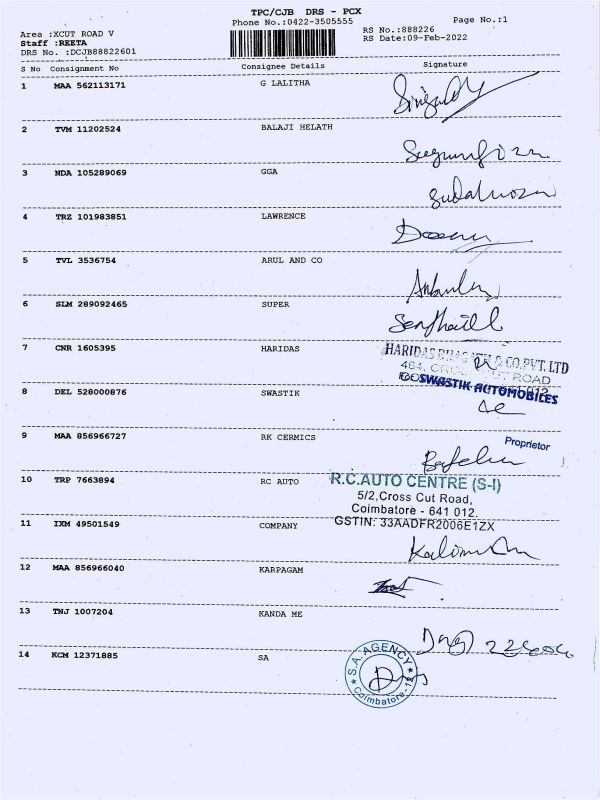 TPC/CJB DRS - PCX
Phone No.:0422-3505555
Page No.:1
Area :XCUT ROAD V
RS No.:888226
Staff :REETA
RS Date:09-Feb-2022
DRS No. :DCJB88822601
S No Consignment No Consignee Details Signature
1 MAA 562113171 G LALITHA
2 TVM 11202524 BALAJI HELATH
3 NDA 105289069 GGA
4 TRZ 101983851 LAWRENCE
5 TVL 3536754 ARUL AND CO
6 SLM 289092465 SUPER
7 CNR 1605395 HARIDAS
HARIDAS & CO.PVT. LTD
ROAD
8 DEL 528000876 SWASTIK
SWASTIK AUTOMOBILES
Proprietor
9 MAA 856966727 RK CERMICS
10 TRP 7663894 RC AUTO
R.C.AUTO CENTRE (S-I)
5/2,Cross Cut Road,
Coimbatore - 641 012.
GSTIN: 33AADFR2006E1ZX
11 IXM 49501549 COMPANY
12 MAA 856966040 KARPAGAM
13 TNJ 1007204 KANDA ME
14 KCM 12371885 SA
S.A. AGENCY
Coimbatore-12